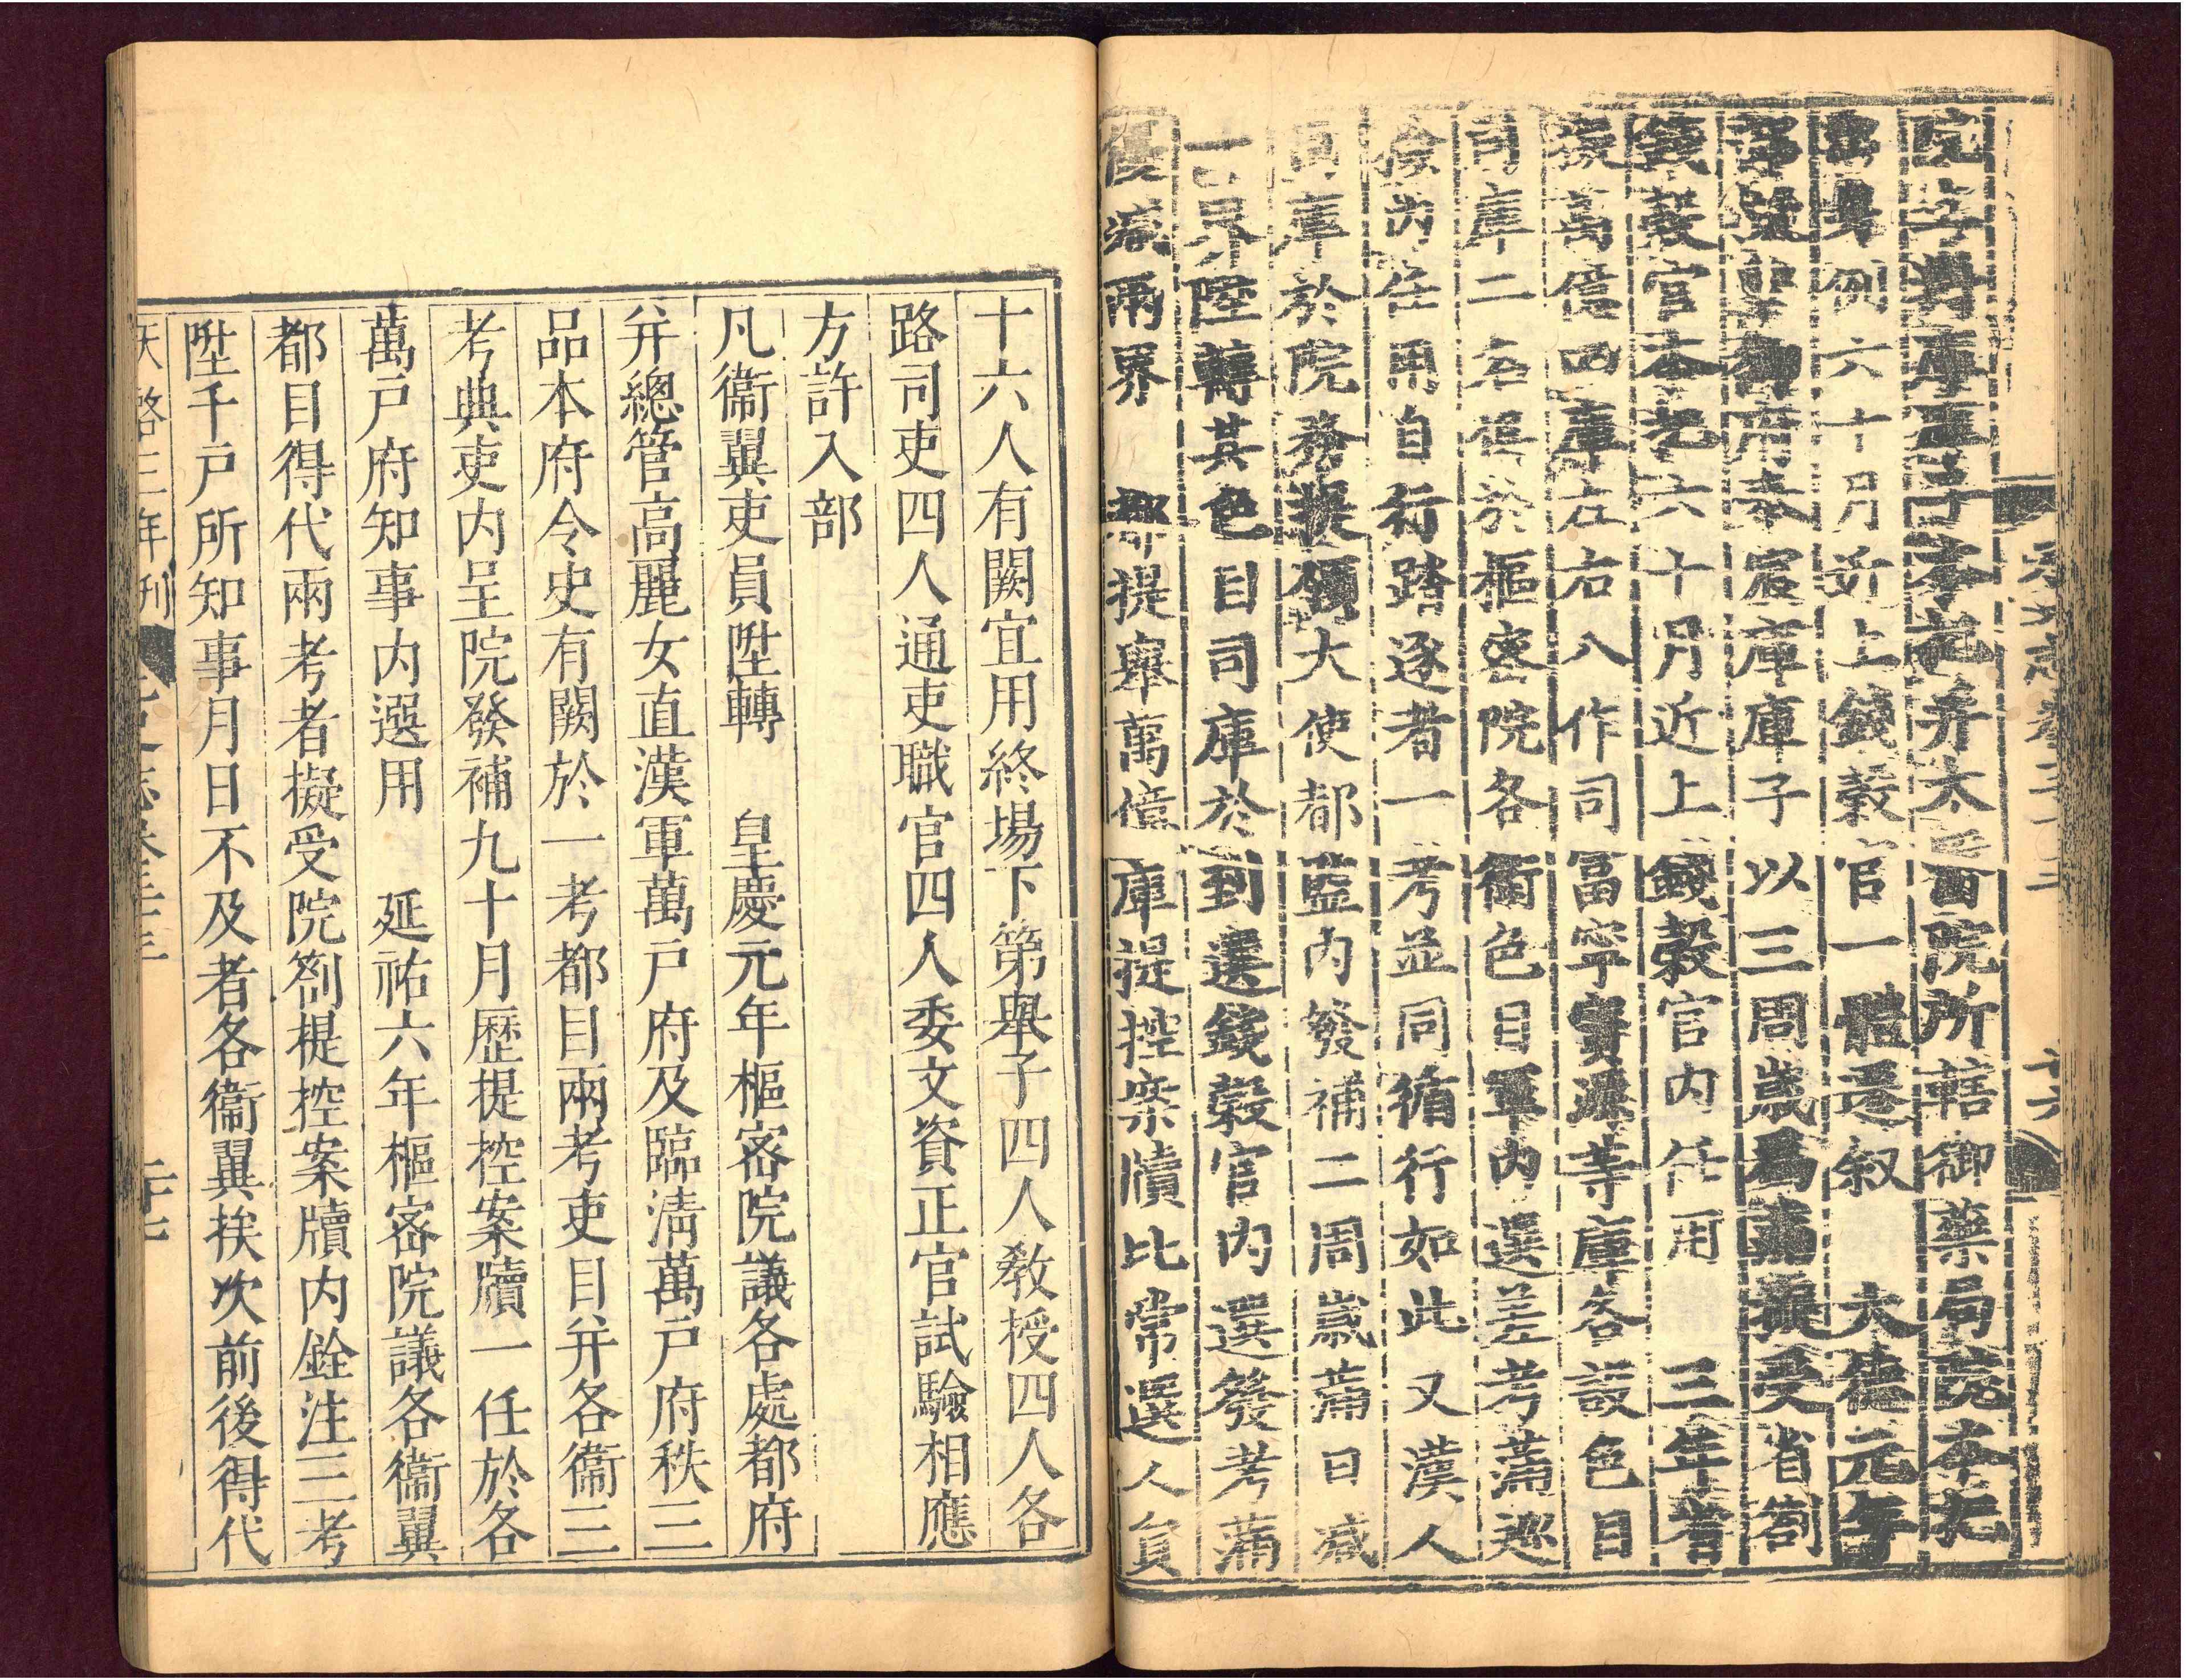 院苫對庫庫子本把并太醫院所轄御藥局院本把
出身例六十月近上錢穀官一體遷叙　大德元年
部擬中御府奉宸庫庫子以三周歲爲滿擬受省劄
錢穀官本把六十月近上錢穀官内任用　三年省
擬萬億四庫左右八作司冨寧寶源等庫各設色目
司庫二名俱於樞密院各衛色目軍内選差考滿廵
檢内任用自行踏逐者一考並同循行如此又漢人
司庫於院務提領大使都監内發補二周歲滿日減
一界陞轉其色目司庫於到選錢穀官内選發考滿
優減兩界　都提舉萬億庫提控案牘比常選人員
元史志卷三十三
二十六
十六人有闕宜用終場下第舉子四人敎授四人各
路司吏四人通吏職官四人委文資正官試驗相應
方許入部
凡衞翼吏員陞轉　皇慶元年樞宻院議各處都府
并總管高麗女直漢軍萬户府及臨清萬户府秩三
品本府令史有闕於一考都目兩考吏目并各衞三
考典吏内呈院發補九十月歴提控案牘一任於各
萬户府知事内選用　延祐六年樞宻院議各衞翼
都目得代兩考者擬受院劄提控案牘内銓注三考
陞千户所知事月日不及者各衞翼挨次前後得代
天啓三年刊
元史志卷三十三
二十七